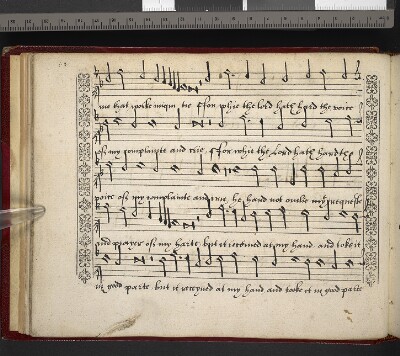 me that worke iniqui tie ffor whie the lord hath herd the voice
off my complaynte and crie, ffor whie the Lord hath hard the
voice off my complainte and crie, he hard not onelie my requeste
and prayer off my harte but it receaved at my hand and toke it
in good parte but it receyved at my hand and tooke it in good parte